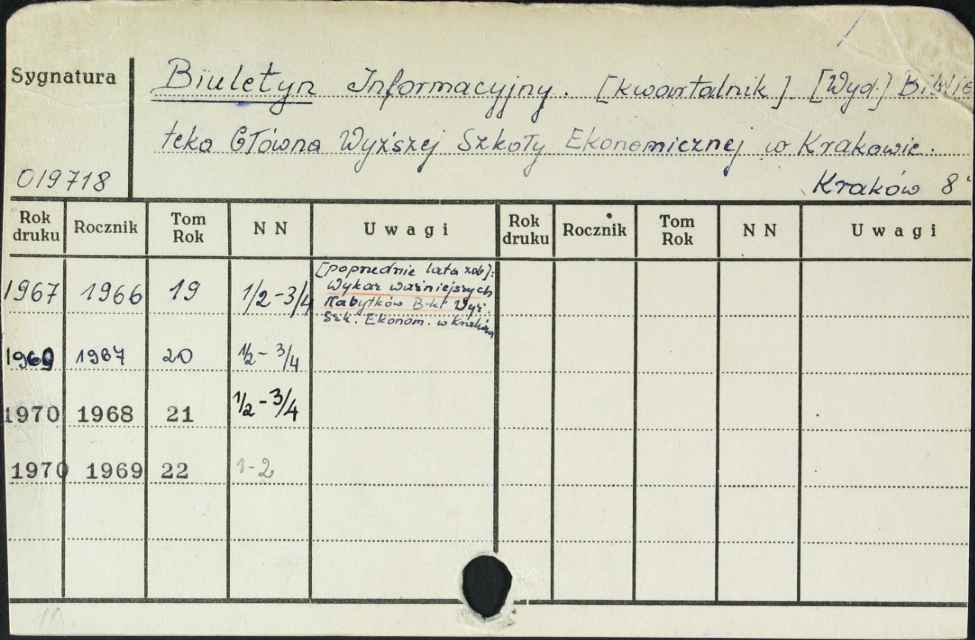 Sygnatura
Biuletyn Informacyjny. [kwartalnik]. [Wyd.] Biblio
teka Główna Wyższej Szkoły Ekonomicznej w Krakowie.
019718
Kraków 8°
Rok druku Rocznik Tom Rok N N Uwagi Rok druku Rocznik Tom Rok N N Uwagi
[poprzednie lata zob]:
1967 1966 19 1/2-3/4 Wykaz ważniejszych
Nabytków B-ki Wyż.
Szk. Ekonom. w Krakow
1969 1967 20 1/2-3/4
1970 1968 21 1/2-3/4
1970 1969 22 1-2